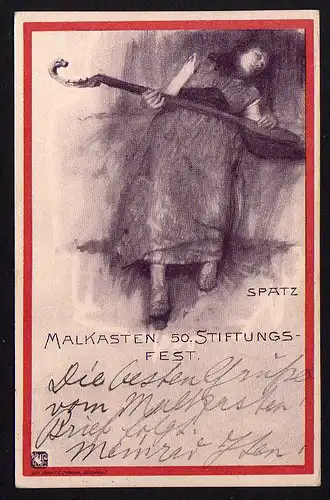 SPATZ
MALKASTEN. 50. STIFTUNGS-
FEST.
Die besten Grüße
vom Malkasten!
Brief folgt.
Meinrad